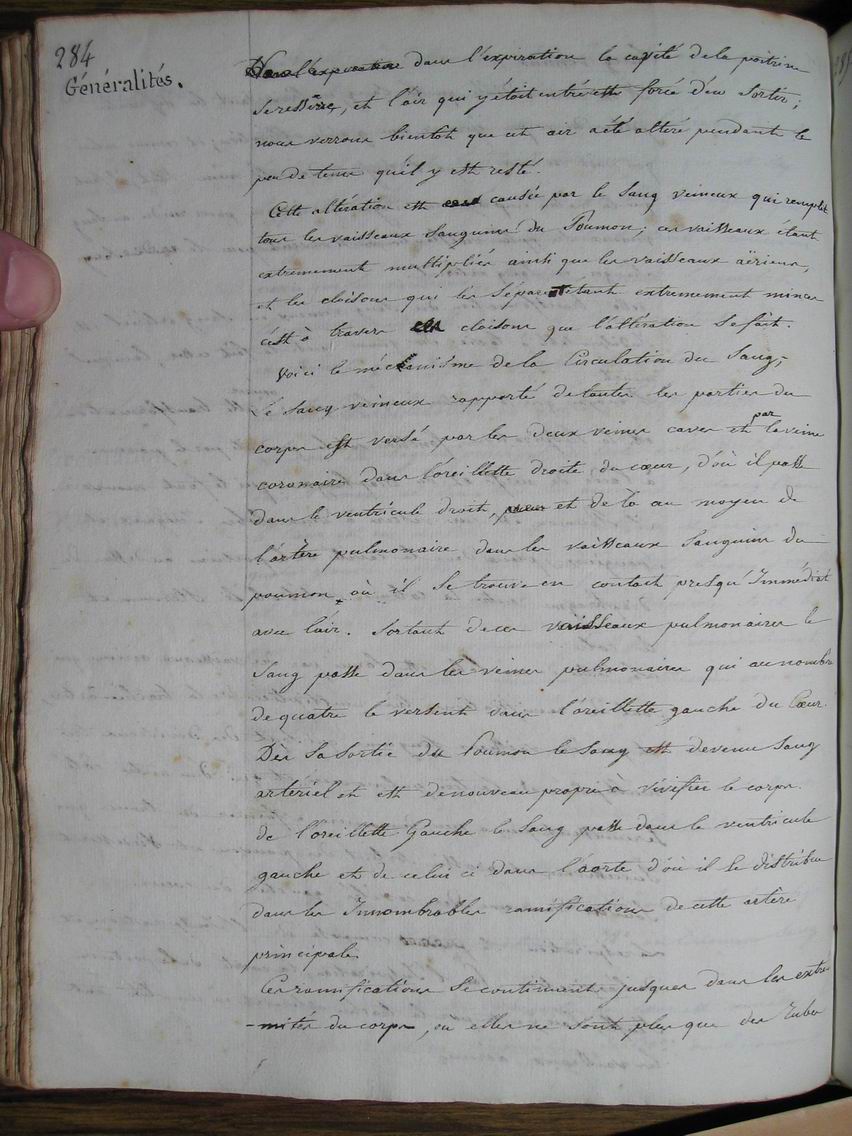 284
Généralités.
dans l'expiration la cavité de la poitrine
se resserre, et l'air qui y était entré est forcé d'en sortir;
nous verrons bientot que cet air a été altéré pendant le
peu de tems qu'il y est resté.
Cette altération est causée par le sang veineux qui remplit
tous les vaisseaux sanguins du Poumon; ces vaisseaux étant
extremement multipliés ainsi que les vaisseaux aëriens,
et les cloisons qui les séparent étant extremement minces
c'est à travers ces cloisons que l'altération se fait.
Voici le méchanisme de la Circulation du Sang;
Le sang veineux rapporté de toutes les parties du
corps est versé par les deux veines caves et par la veine
coronaire dans l'oreillette droite du cœur, d'où il passe
dans le ventricule droit, et de là au moyen de
l'artère pulmonaire dans les vaisseaux sanguins du
poumon, où il se trouve en contact presqu'Immédiat
avec l'air. Sortant de ces vaisseaux pulmonaires le
Sang passe dans les veines pulmonaires qui au nombre
de quatre le versent dans l'oreillette gauche du Cœur.
Dès sa sortie du Poumon le sang est devenu sang
artériel et est de nouveau propre à vivifier le corps.
de l'oreillette Gauche le Sang passe dans le ventricule
gauche et de celui ci dans l'aorte d'où il se distribue
dans les Innombrables ramifications de cette artère
principale.
Ces ramifications se continuent jusques dans les extré
-mités du corps, où elles ne sont plus que des tubes